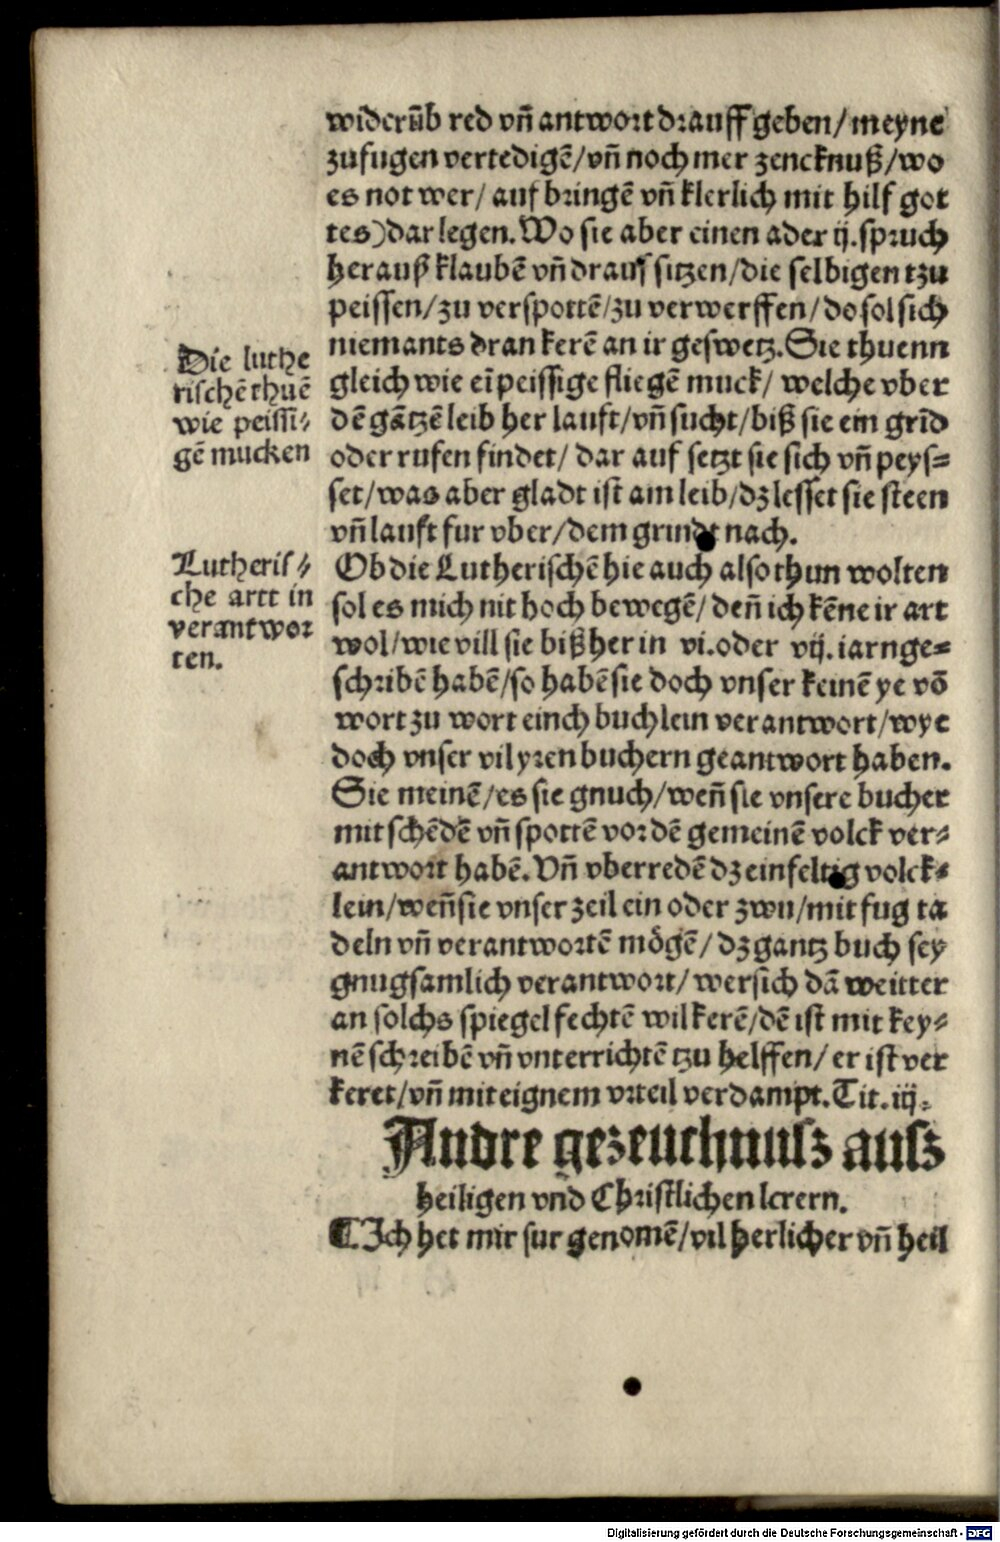 widerũb red vñ antwort drauff geben/meyne
zufugen vertedigē/vñ noch mer zencknuß/wo
es not wer/ auf bringē vñ klerlich mit hilf got
tes)dar legen. Wo sie aber einen ader ij. spruch
herauß klaubē vñ drauf sitzen/die selbigen tzu
peissen/zu verspottē/zu verwerffen/do sol sich
niemants dran kerē an ir geswetz. Sie thuenn
gleich wie eī peissige fliegē muck/ welche vber
dē gātzē leib her lauft/vñ sucht/biß sie ein grīd
oder rufen findet/ dar auf setzt sie sich vñ peys=
set/was aber gladt ist am leib/dz lesset sie steen
vñ lauft fur vber/dem grindt nach.
Die luthe
rischē thuē
wie peissi/
gē mucken
Ob die Lutherischē hie auch also thun wolten
sol es mich nit hoch bewegē/ deñ ich kēne ir art
wol/wie vill sie bißher in vi. oder vij. iarn ge=
schribē habē/so habē sie doch vnser keinē ye vō
wort zu wort einch buchlein verantwort/wye
doch vnser vil yren buchern geantwort haben.
Sie meinē/es sie gnuch/weñ sie vnsere bucher
mit schēdē vñ spottē vor dē gemeinē volck ver/
antwort habē. Vñ vberredē dz einfeltig volck/
lein/weñ sie vnser zeil ein oder zwu/mit fug ta
deln vñ verantwortē mögē/ dz gantz buch sey
gnugsamlich verantwort/ wer sich dā weitter
an solchs spiegelfechtē wil kerē/dē ist mit key/
nē schreibē vñ vnterrichtē tzu helffen/ er ist ver
keret/vñ mit eignem vrteil verdampt. Tit. iij.
Lutheris/
che artt in
verantwor
ten.
Andre gezeuchnusz ausz
heiligen vnd Christlichen lerern.
¶ Ich het mir fur genomē/vil herlicher vñ heil
Digitalisierung gefördert durch die Deutsche Forschungsgemeinschaft - DFG